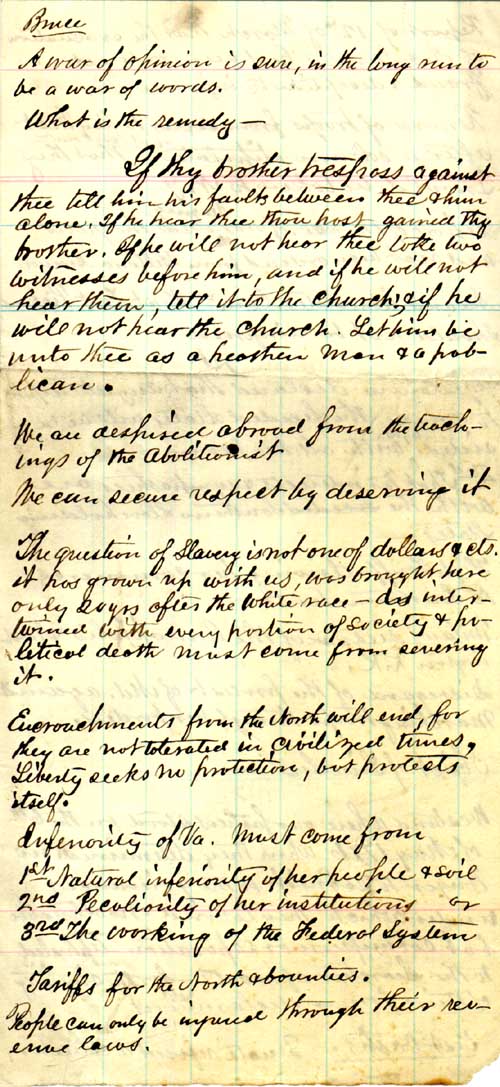 Bruce
A war of opinion is sure, in the long run to
be a war of words.
What is the remedy—
If thy brother tresspass against
thee tell him his faults between thee & him
alone. If he hear thee thou hast gained thy
brother. If he will not hear thee take two
witnesses before him, and if he will not
hear them, tell it to the church; & if he
will not hear the church. Let him be
unto thee as a heathen man & a pub-
lican.
We are despised abroad from the teach-
ings of the Abolitionist
We can secure respect by deserving it
The question of Slavery is not one of dollars & cts.
it has grown up with us, was brought here
only 20 yrs after the White race— is inter-
twined with every portion of Society & po-
litical death must come from severing
it.
Encroachments from the North will end, for
they are not tolerated in civilized times,
Liberty seeks no protection, but protects
itself.
Inferiority of Va. Must come from
1st Natural inferiority of her people & soil
2nd Peculiarity of her institutions or
3rd The working of the Federal System
Tariffs for the North & bounties.
People can only be injured through their rev-
enue laws.